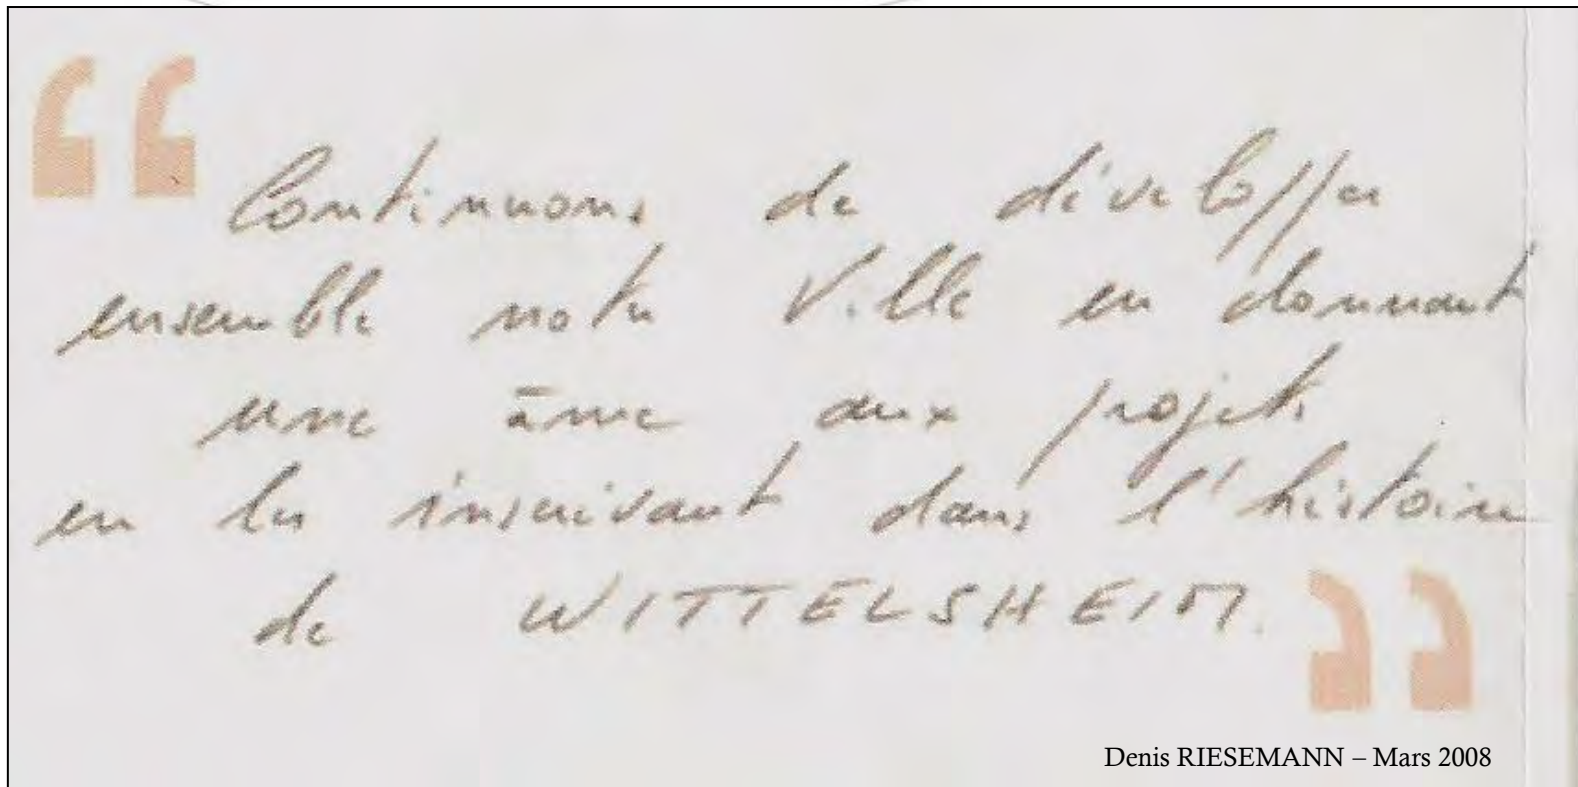 “ Continuons de développer
ensemble notre Ville en donnant
une âme aux projets
en les inscrivant dans l'histoire
de WITTELSHEIM. ”
Denis RIESEMANN – Mars 2008